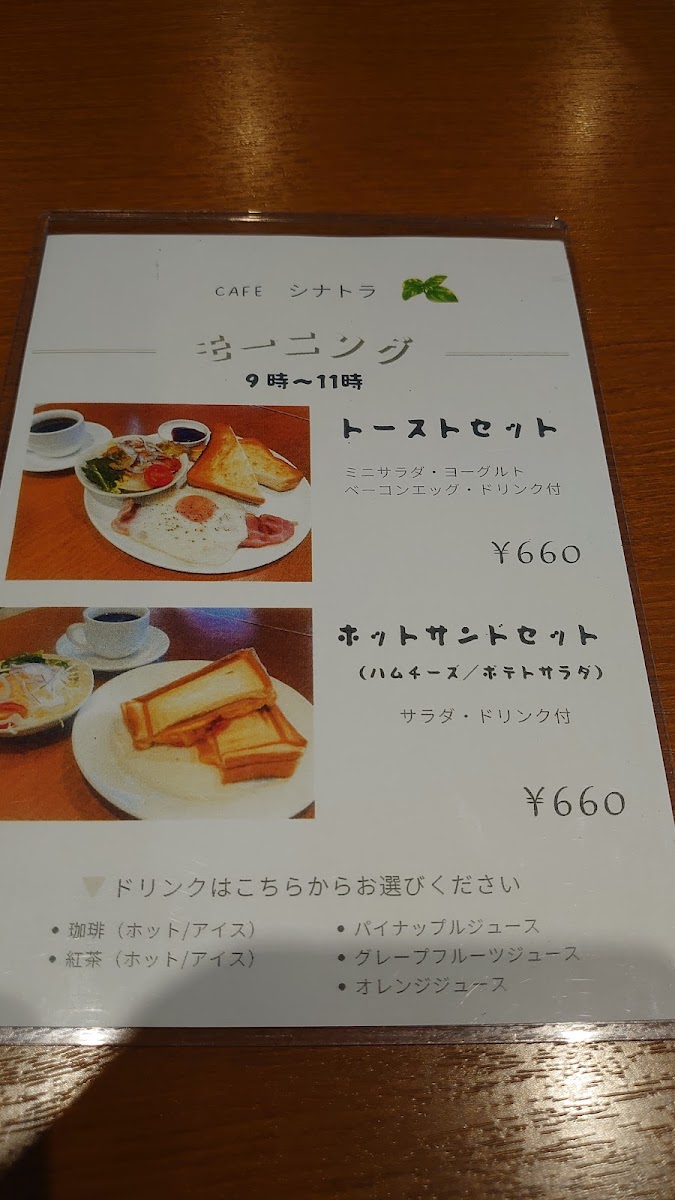 CAFE シナトラ
モーニング
9時～11時
トーストセット
ミニサラダ・ヨーグルト
ベーコンエッグ・ドリンク付
¥660
ホットサンドセット
(ハムチーズ/ポテトサラダ)
サラダ・ドリンク付
¥660
▼ドリンクはこちらからお選びください
• 珈琲（ホット/アイス）
• 紅茶（ホット/アイス）
• パイナップルジュース
• グレープフルーツジュース
• オレンジジュース